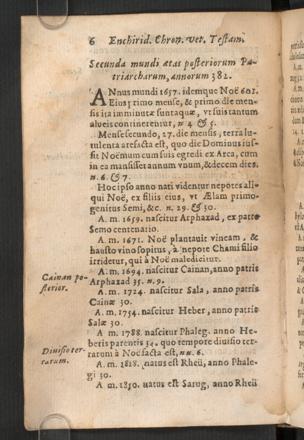 6 Enchirid. Chron. vet. Testam.
Secunda mundi ætas posteriorum Pa-
triarcharum, annorum 382.
ANnus mundi 1657. idemque Noë 601.
Eius primo mense, & primo die men-
sis ita imminutæ sunt aquæ, vt suis tantum
alueis continerentur, n. 4. & 5.
Mense secundo, 27. die mensis, terra lu-
tulenta arefacta est, quo die Dominus ius-
sit Noëmum cum suis egredi ex Arca, cum
in ea mansisset annum vnum, & decem dies.
n. 6. & 7.
Hoc ipso anno nati videntur nepotes ali-
qui Noë, ex filiis eius, vt Ælam primo-
genitus Semi, &c. n. 29. & 30.
A. m. 1659. nascitur Arphaxad, ex patre
Semo centenario.
A. m. 1671. Noë plantauit vineam, &
hausto vino sopitus, à nepote Chami filio
irridetur, qui à Noë maledicitur.
A. m. 1694. nascitur Cainan, anno patris
Arphaxad 35. n. 9.
Cainan po-
sterior.
A. m. 1724. nascitur Sala, anno patris
Cainæ 30.
A. m. 1754. nascitur Heber, anno patris
Salæ 30.
A. m. 1788. nascitur Phaleg. anno He-
beris parentis 34. quo tempore diuisio ter-
rarum à Noë facta est, nu. 6.
Diuisio ter-
rarum.
A. m. 1818. natus est Rheü, anno Phale-
gi 30.
A. m. 1850. natus est Sarug, anno Rheü